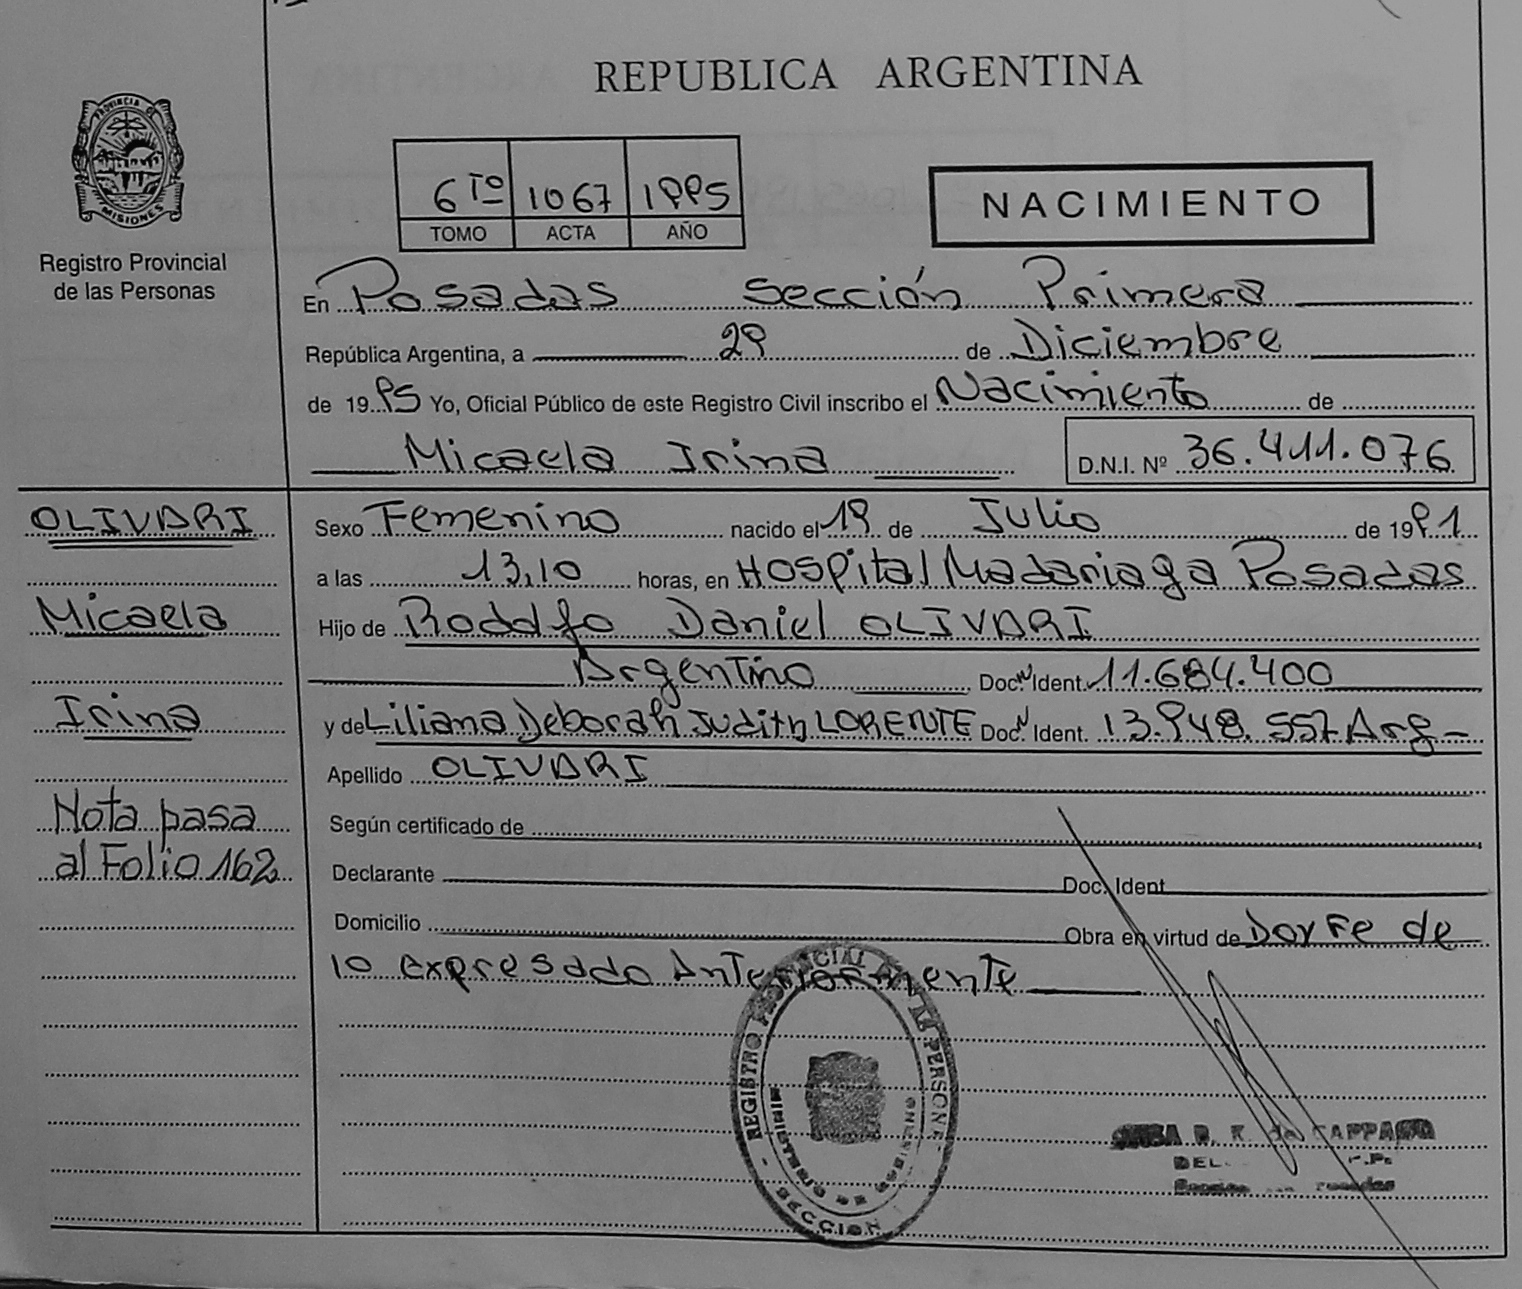 REPUBLICA ARGENTINA
PROVINCIA DE
MISIONES
Registro Provincial
de las Personas
6to 1067 1995
TOMO ACTA AÑO
NACIMIENTO
En Posadas Sección Primera
República Argentina, a 29 de Diciembre
de 1995 Yo, Oficial Público de este Registro Civil inscribo el Nacimiento de
Micaela Irina
D.N.I. Nº 36.411.076
OLIVARI
Micaela
Irina
Nota pasa
al Folio 162
Sexo Femenino nacido el 19 de Julio de 1991
a las 13,10 horas, en Hospital Madariaga Posadas
Hijo de Rodolfo Daniel OLIVARI
Argentino Doc. Ident. 11.684.400
y de Liliana Deborah Judith LORENTE Doc. Ident. 13.948.557 Arg-
Apellido OLIVARI
Según certificado de
Declarante Doc. Ident
Domicilio Obra en virtud de Doy Fe de
lo expresado Anteriormente
REGISTRO PROVINCIAL DE LA PERSONA
MINISTERIO DE GOBIERNO
SECCION